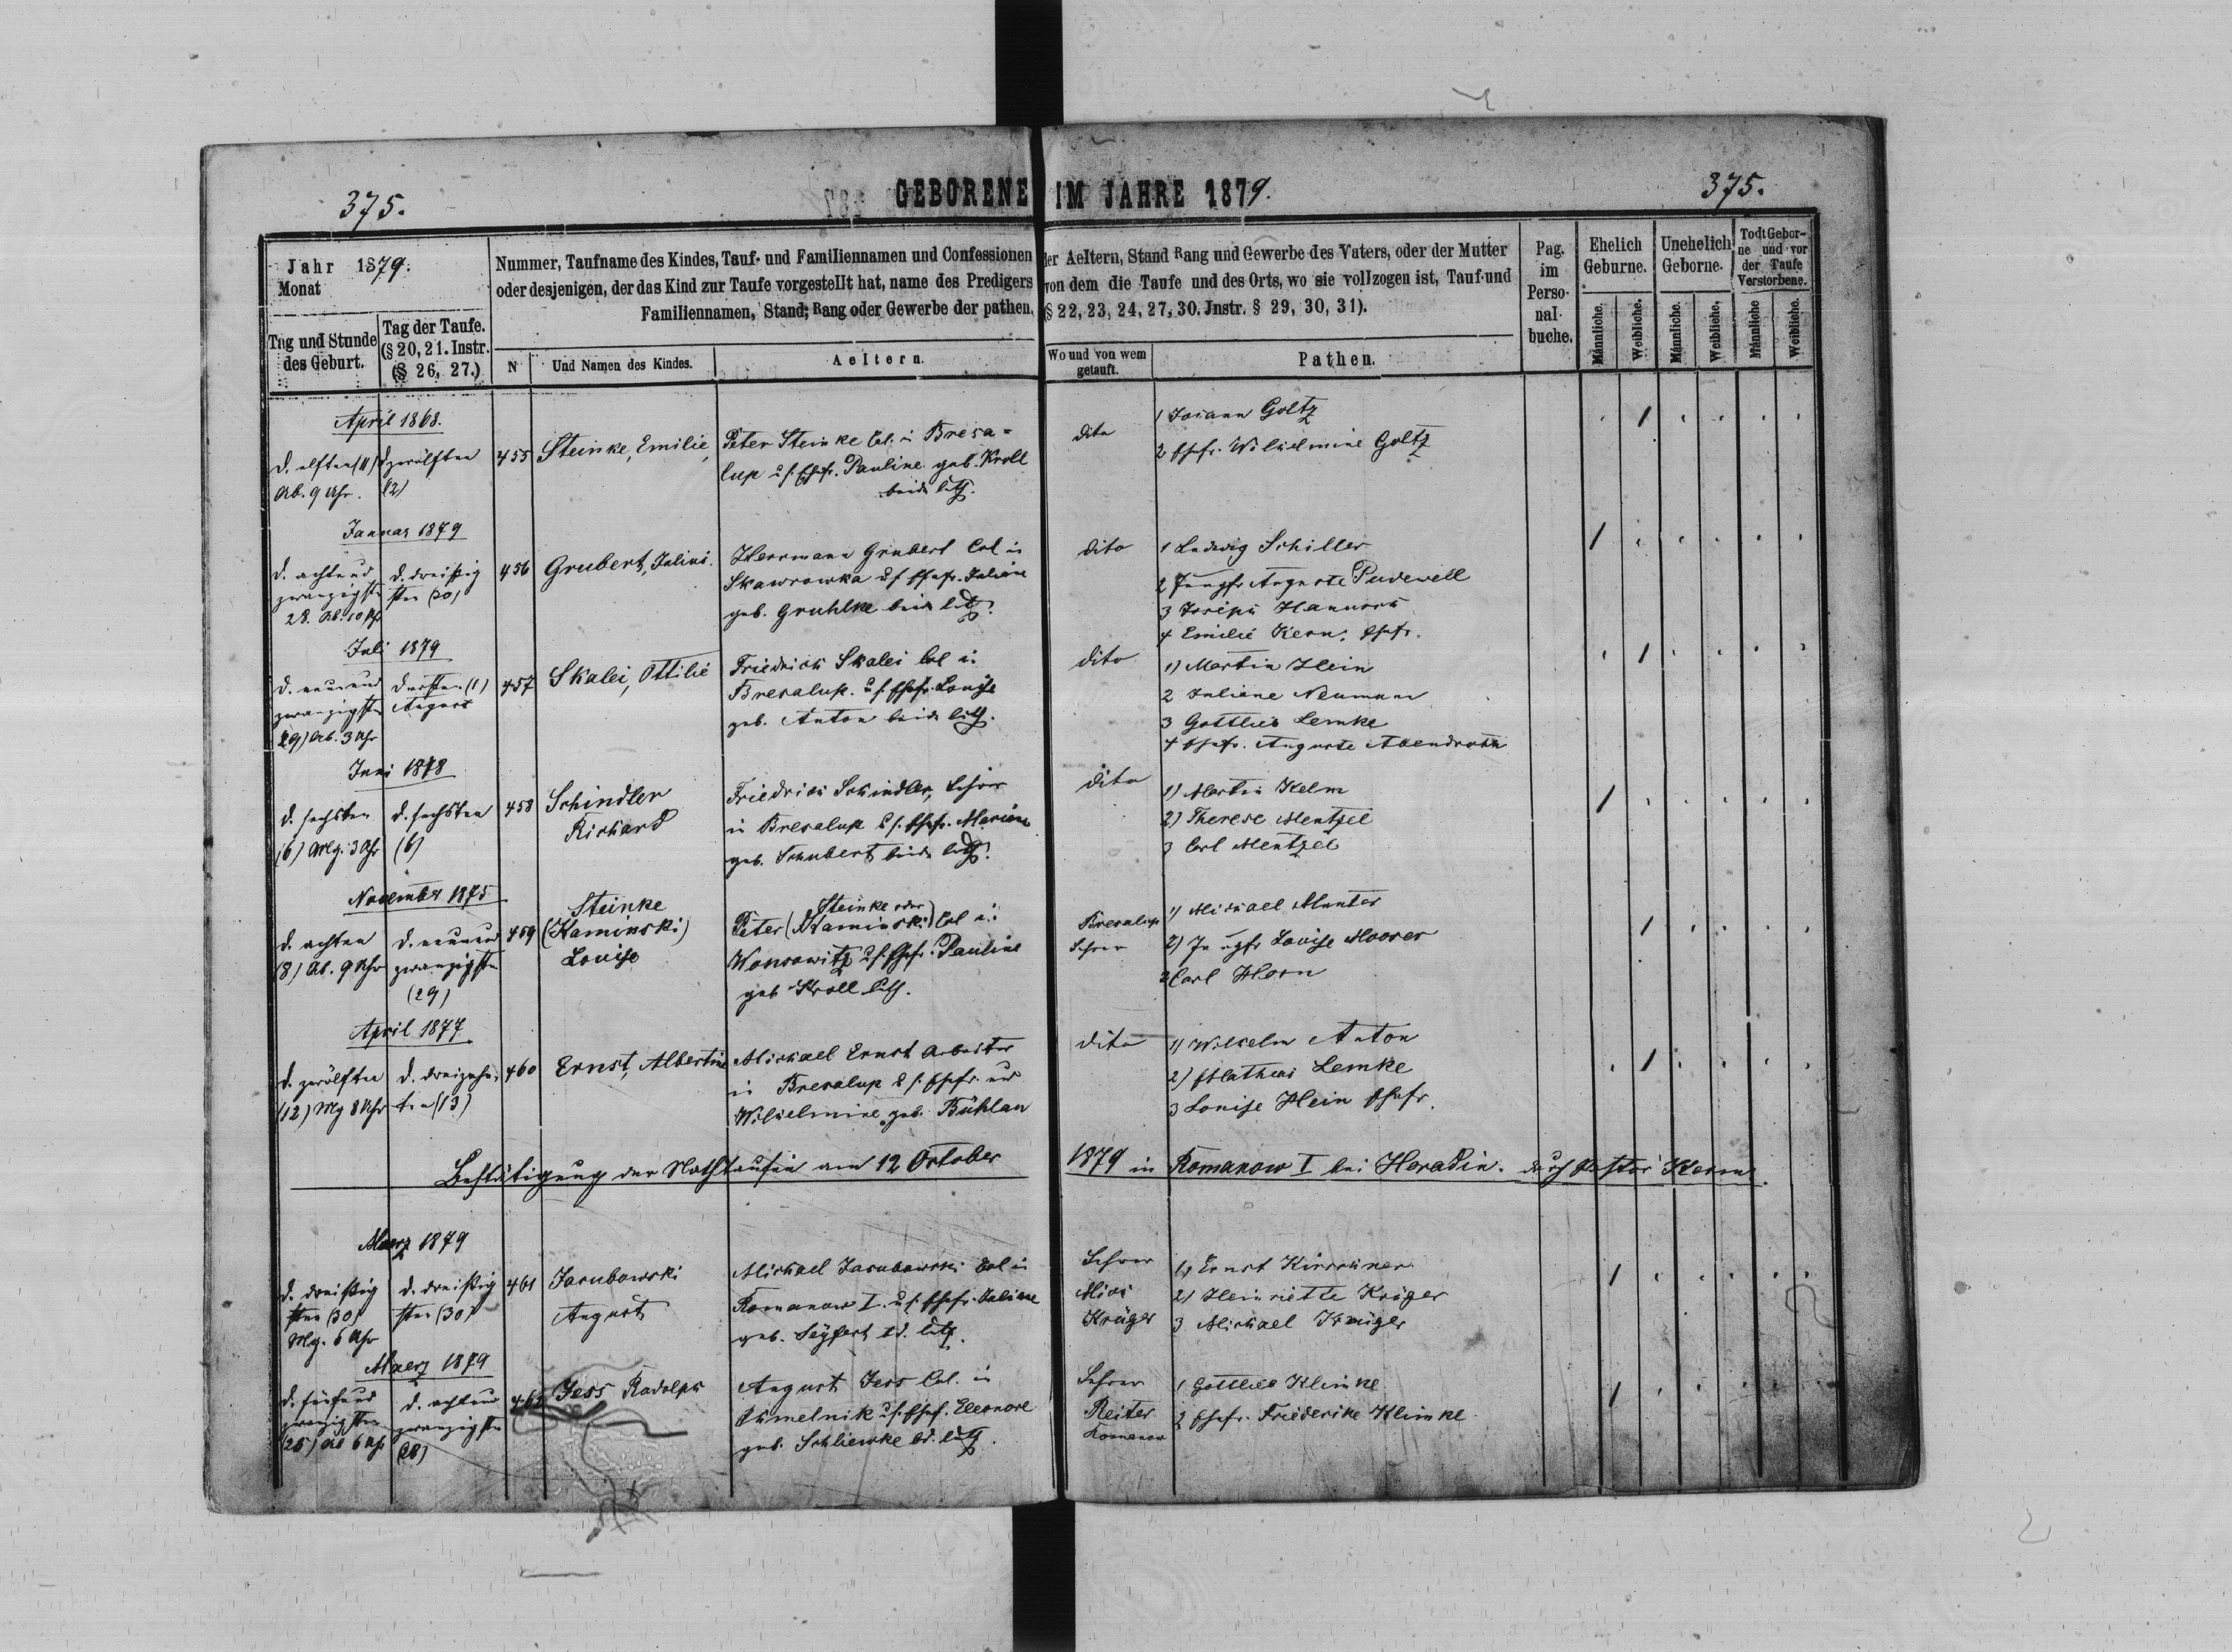 375.
GEBORENE IM JAHRE 1879.
375.
Jahr 1879.
Monat
Tag und Stunde des Geburt.
Tag der Taufe. (§ 20, 21. Instr. (§ 26, 27.)
Nummer, Taufname des Kindes, Tauf- und Familiennamen und Confessionen der Aeltern, Stand Rang und Gewerbe des Vaters, oder der Mutter
oder desjenigen, der das Kind zur Taufe vorgestellt hat, name des Predigers von dem die Taufe und des Orts, wo sie vollzogen ist, Tauf-und
Familiennamen, Stand; Rang oder Gewerbe der pathen. (§ 22, 23, 24, 27, 30. Jnstr. § 29, 30, 31).
N
Und Namen des Kindes.
Aeltern.
Wo und von wem getauft.
Pathen.
Pag. im Perso- nal- buche.
Ehelich Geburne.
Unehelich Geborne.
Todt Gebor- ne und vor der Taufe Verstorbene.
Männliche.
Weibliche.
Männliche.
Weibliche.
Männliche
Weibliche.
April 1868.
d. elften (11)
Ab. 9 Uhr.
d zwölften
12)
455
Steinke, Emilie,
Peter Steinke Col. in Bresa=
lup u s. Ehefr. Pauline geb. Kroll
beide luth.
dito
1 Johann Goltz
2 Ehefr. Wilhelmine Goltz
Januar 1879
d. achtund
zwanzigsten
28. Ab. 10 Uhr
d. dreißig
sten (30)
456
Grubert, Julius.
Herrmann Grubert Col in
Skawrowka u s Ehefr. Juliane
geb. Gruhlke beide luth.
dito
1 Ludwig Schiller
2 Jungfr Auguste Pudewell
3 Joseph
4 Emilie Kern, Ehefr.
Juli 1879
d. neunund
zwanzigsten
29) Ab. 3 Uhr
d ersten (1)
August
457
Skalei, Ottilie
Friedrich Skalei Col in
Bresalup. u s. Ehefr. Louise
geb. Anton beide luth.
dito
1) Martin Hein
2 Juliane Neumann
3 Gottlieb Lemke
4 Ehefr. Auguste Abendroth
Juni 1878
d. sechsten
(6) Mrg. 3 Uhr
d. sechsten
(6)
458
Schindler
Richard
Friedrich Schindler, Lehrer
in Bresalup u s. Ehefr. Mariane
geb. Schubert beide luth.
dito
1) Martin Kelm
2) Therese Mentzel
3 Carl Mentzel
November 1875
d. achten
(8) Ab. 9 Uhr
d. neunund
zwanzigsten
(29)
459
Steinke
(Kaminski)
Louise
Steinke oder
Peter (Kaminski) Col in
Wonsowitz u s. Ehefr. Pauline
geb Kroll luth.
Bresalup
Lehrer
1) Michael Munter
2) Jungfr Louise Mooser
3 Carl Horn
April 1877
d. zwölften
(12) Mg 8 Uhr
d. dreizehn
ten (13)
460
Ernst, Albertine
Michael Ernst Arbeiter
in Bresalup u s. Ehefr.
Wilhelmine geb. Bühlau
dito
1) Wilhelm Anton
2) Mathias Lemke
3 Louise Hein Ehefr.
Bestätigung der Nothtaufen am 12 October 1879 in Romanow I bei Horadin. durch Pastor Kern.
Maerz 1879
d. dreißig
sten (30)
Mg. 6 Uhr
d. dreißig
sten (30)
461
Jacubowski
August
Michael Jacubowski Col in
Romanow I. u s. Ehefr. Juliane
geb. Seyfert bd. luth.
Lehrer
Mich
Krüger
1) Ernst Kirschner
2) Heinriette Krüger
3 Michael Krüger
Maerz 1879
d. fünfund
zwanzigsten
(25) Ab 6 Uhr
d. achtund
zwanzigsten
(28)
462
Jess Rudolph
August Jess Col. in
Chmelnik u s. Ehefr. Eleonore
geb. Schliewke bd. luth.
Lehrer
Reiter
Romanow
1 Gottlieb Klinke
2 Ehefr. Friederike Klinke